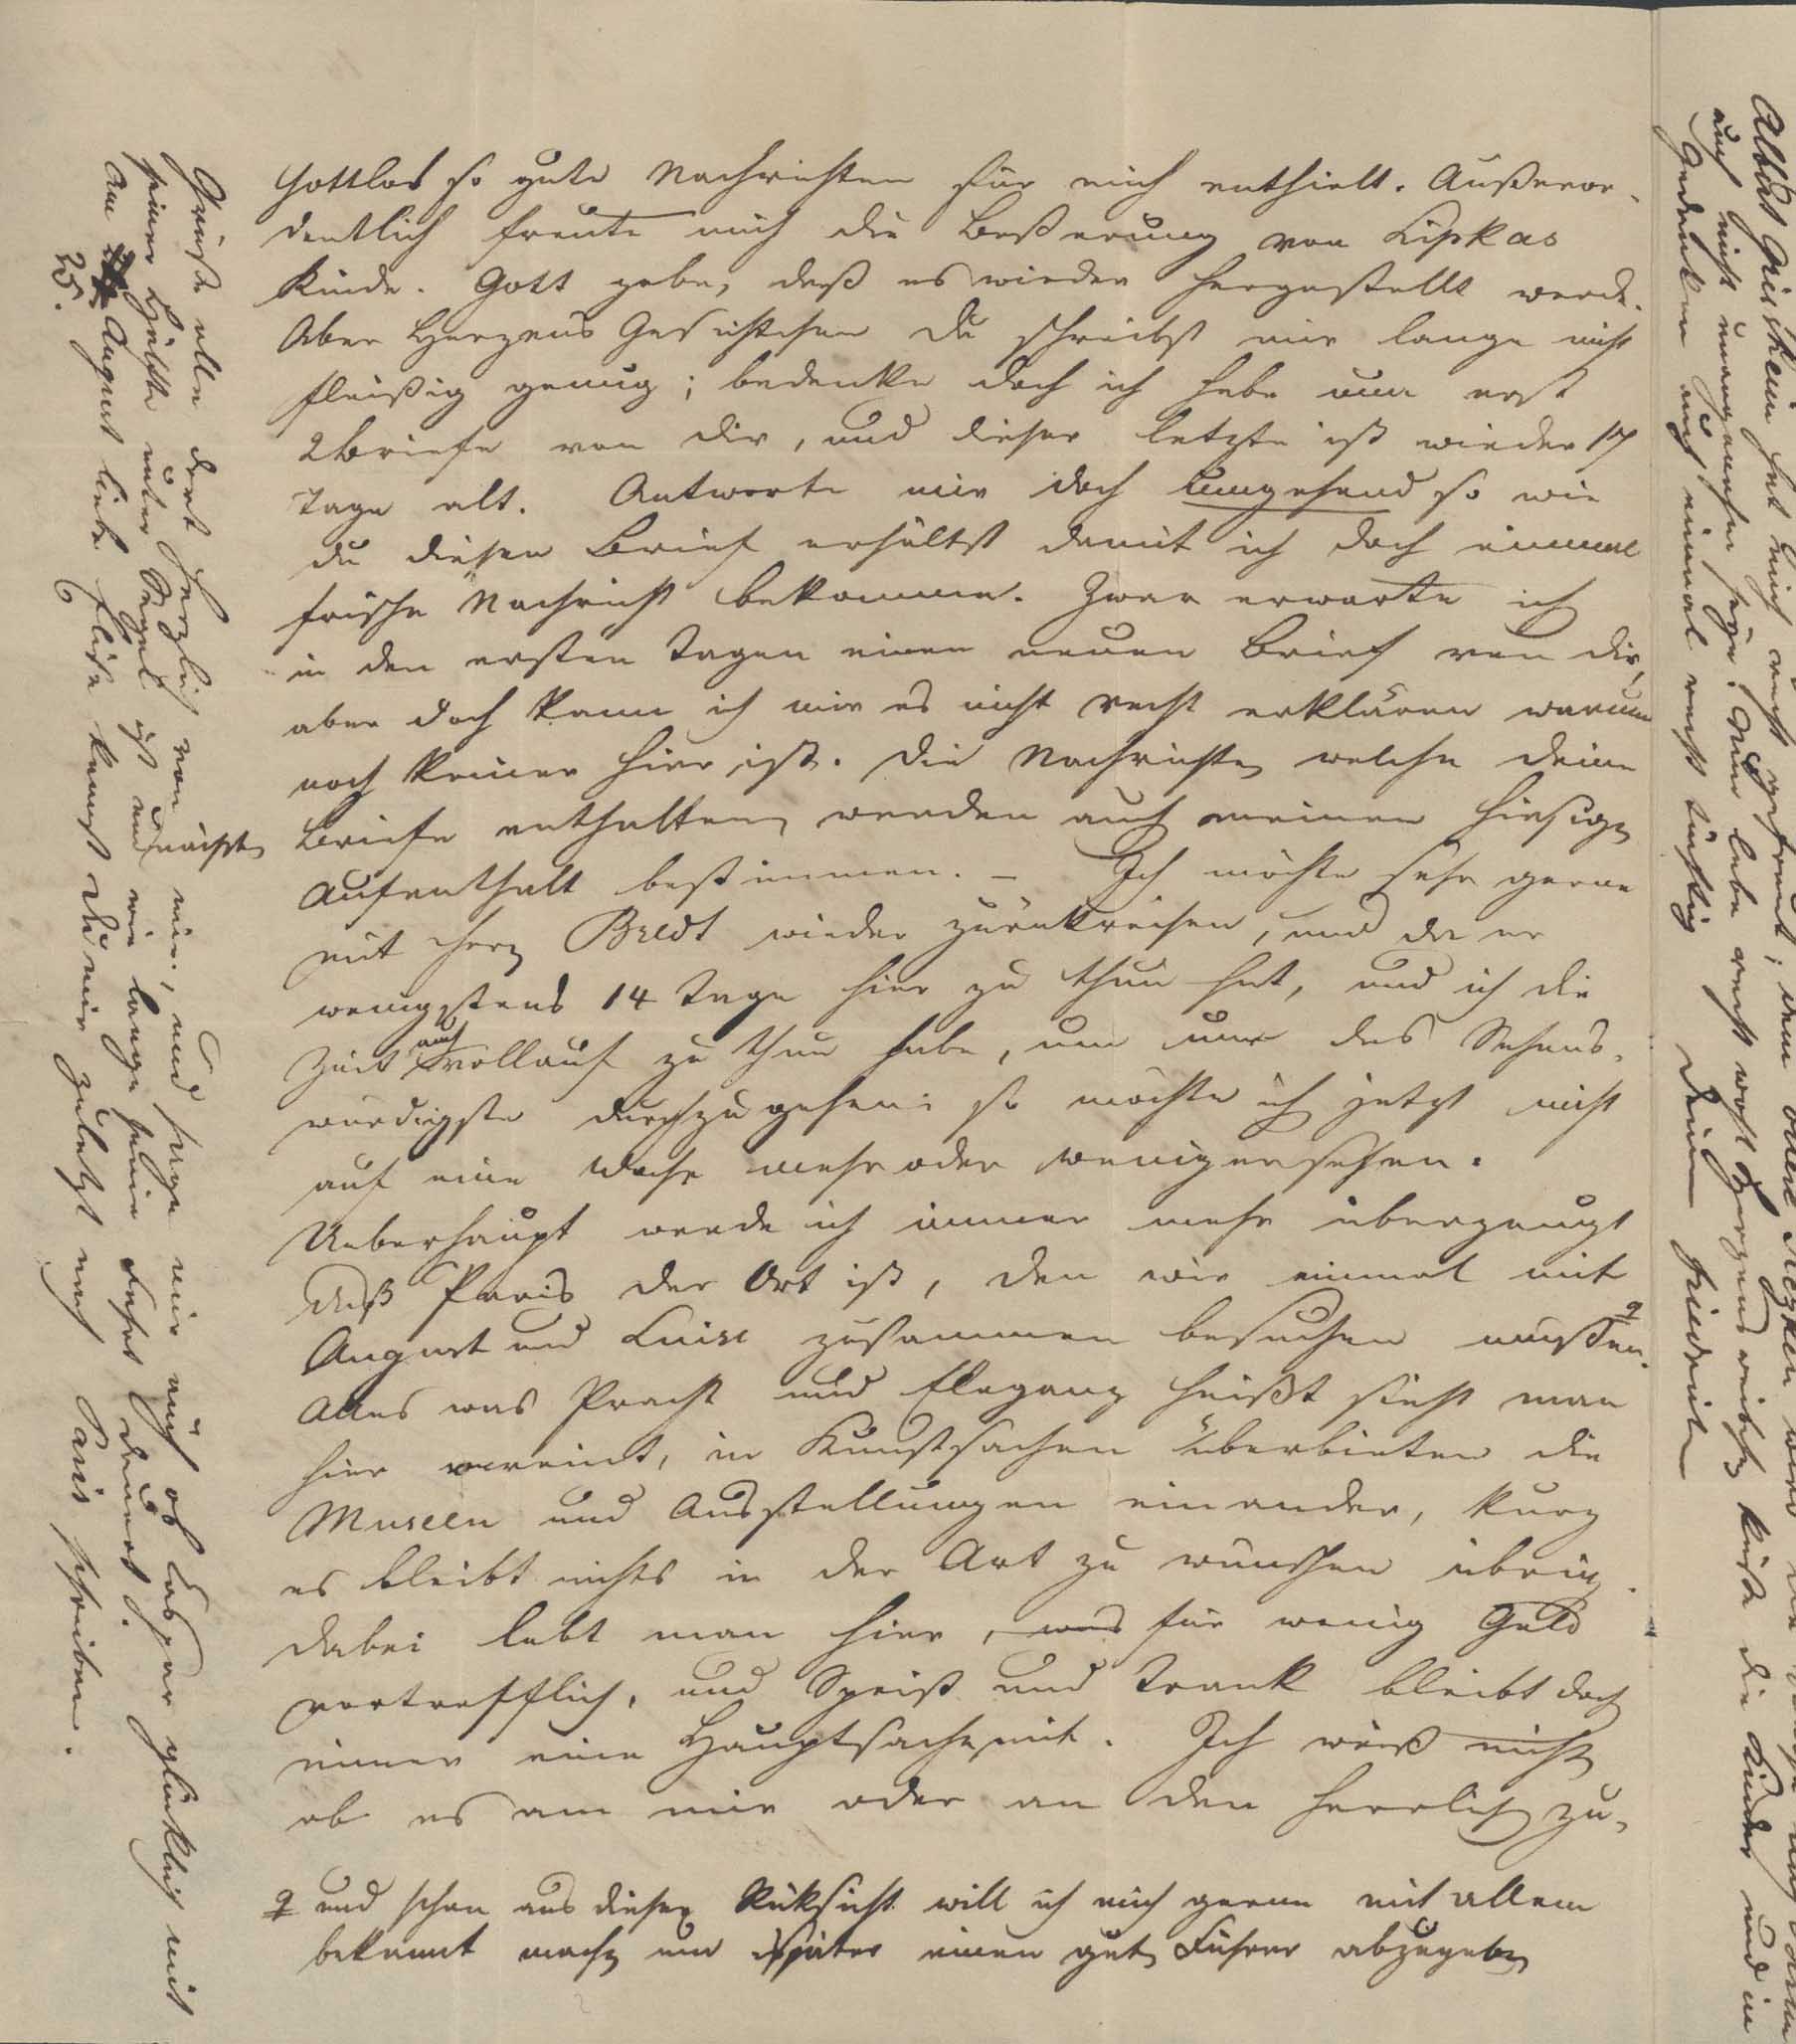 Gottlob so gute Nachrichten für mich enthielt. Außeror-
dentlich freute mich die Beßerung von Lipkas
Kinde. Gott gebe, daß es wieder hergestellt werde.
Aber Herzens Gesichtchen du schreibst mir lange nicht
fleißig genug; bedenke doch ich habe nun erst
2 Briefe von dir, und dieser letzte ist wieder 17
Tage alt. Antworte mir doch umgehend so wie
du diesen Brief erhältst damit ich doch einmal
frische Nachricht bekomme. Zwar erwarte ich
in den ersten Tagen einen neuen Brief von dir,
aber doch kann ich mir es nicht recht erklären warum
noch keiner hier ist. Die Nachrichten welche deine
Briefe enthalten werden auch meinen hiesigen
Aufenthalt bestimmen. – Ich möchte sehr gerne
mit Herrn Bredt wieder zurükreisen, und da er
wenigstens 14 Tage hier zu thun hat, und ich die
Zeit auch vollauf zu thun habe, um nur das Sehens-
würdigste durchzugehen: so möchte ich jetzt nicht
auf eine Woche mehr oder weniger sehen.
Ueberhaupt werde ich immer mehr überzeugt
daß Paris der Ort ist, den wir einmal mit
August und Luise zusammen besuchen müssen.
Alles was Pracht und Eleganz heißt sieht man
hier vereint, in Kunstsachen überbieten die
Museen und Ausstellungen einander, kurz
es bleibt nichts in der Art zu wünschen übrig.
Dabei lebt man hier, was für wenig Geld
vortrefflich, und Speiß und Trank bleibt doch
immer eine Hauptsache mit. Ich weiß nicht
ob es an mir oder an den herrlich zu-
und schon aus dieser Rüksicht will ich mich gerne mit allem
bekannt machen um später einen guten Führer abzugeben
Grüße alle dort herzlich von mir, und sage mir auch ob Caspar glüklich mit
seiner Hälfte unter Segel ist und wie lange seine Fahrt dauert.
Am 25. August liebe kannst du mir zuletzt nach Paris schreiben.
nächsten
Alberts Briefchen hat mich recht gefreut;
auch nicht unangenehm sein. Nun lebe recht wohl Herzens weibchen küße die Kinder und in
Gedenken auch einmal recht tüchtig deinen Friedrich